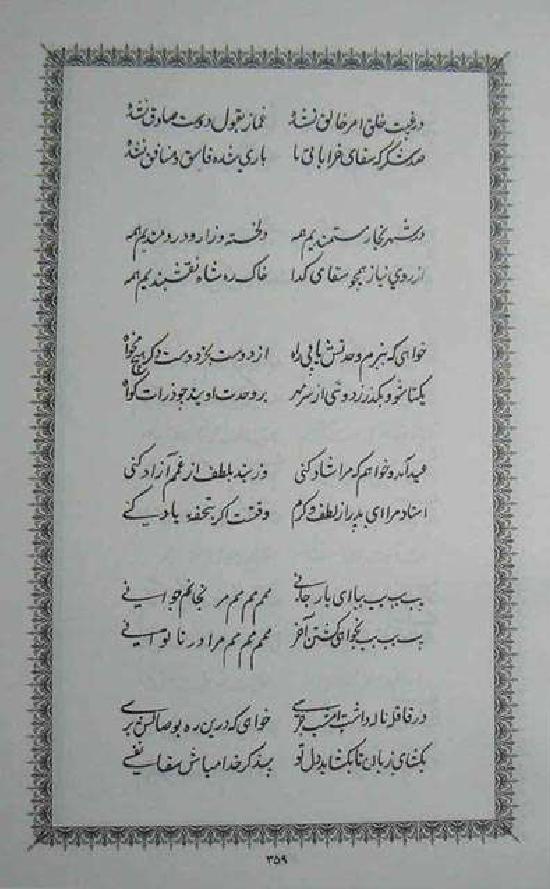 در غیبت خلق امر خالق نشد غماز بقول دوست صادق نشد
صد شکر که سقای خراباتی ما باری شده فاسق و منافق نشد
در شهر نگار مستمندیم همه دلخسته و زار و دردمندیم همه
از روی نیاز همچو سقای گدا خاک ره شاه نقشبندیم همه
خواهی که ببزم وحدتش یابی راه از دوست بجز دوست دگر هیچ مخواه
یکتا شو و بگذر ز دوئی از سر مهر بر وحدت او بین چو ذرات گواه
عید آمد و خواهم که مرا شاد کنی وز بند بلطف از غم آزاد کنی
استاد مرا ای پدر از لطف و کرم وقتست اگر بتحفه یاد کنی
ب ب ب بیا ای یار جانی م م م م مر نجانم جوانی
ب ب ب بخواهی کشتن آخر م م م م مرا در ناتوانی
در قافله نالد است جرسی خواهی که درین ره بوصالش برسی
بگشای زبان تا بگشاید دل تو بی ذکر خدا مباش سقا نفسی
۳۵۹